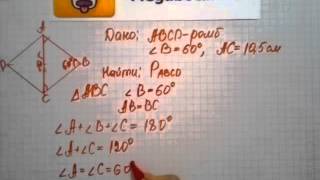 Дано: ABCD-ромб
∠B=60°, AC=10,5см
Найти: P_ABCD
△ABC ∠B=60°
AB=BC
∠A+∠B+∠C=180°
∠A+∠C=120°
∠A=∠C=60°
A
D
60°
B
C